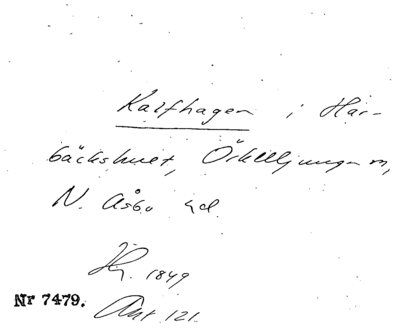 Kalfhagen i Har-
bäckshult, Örkelljunga sn,
N. Åsbo hd.
Hy. 1849
Nr 7479. Akt 121.